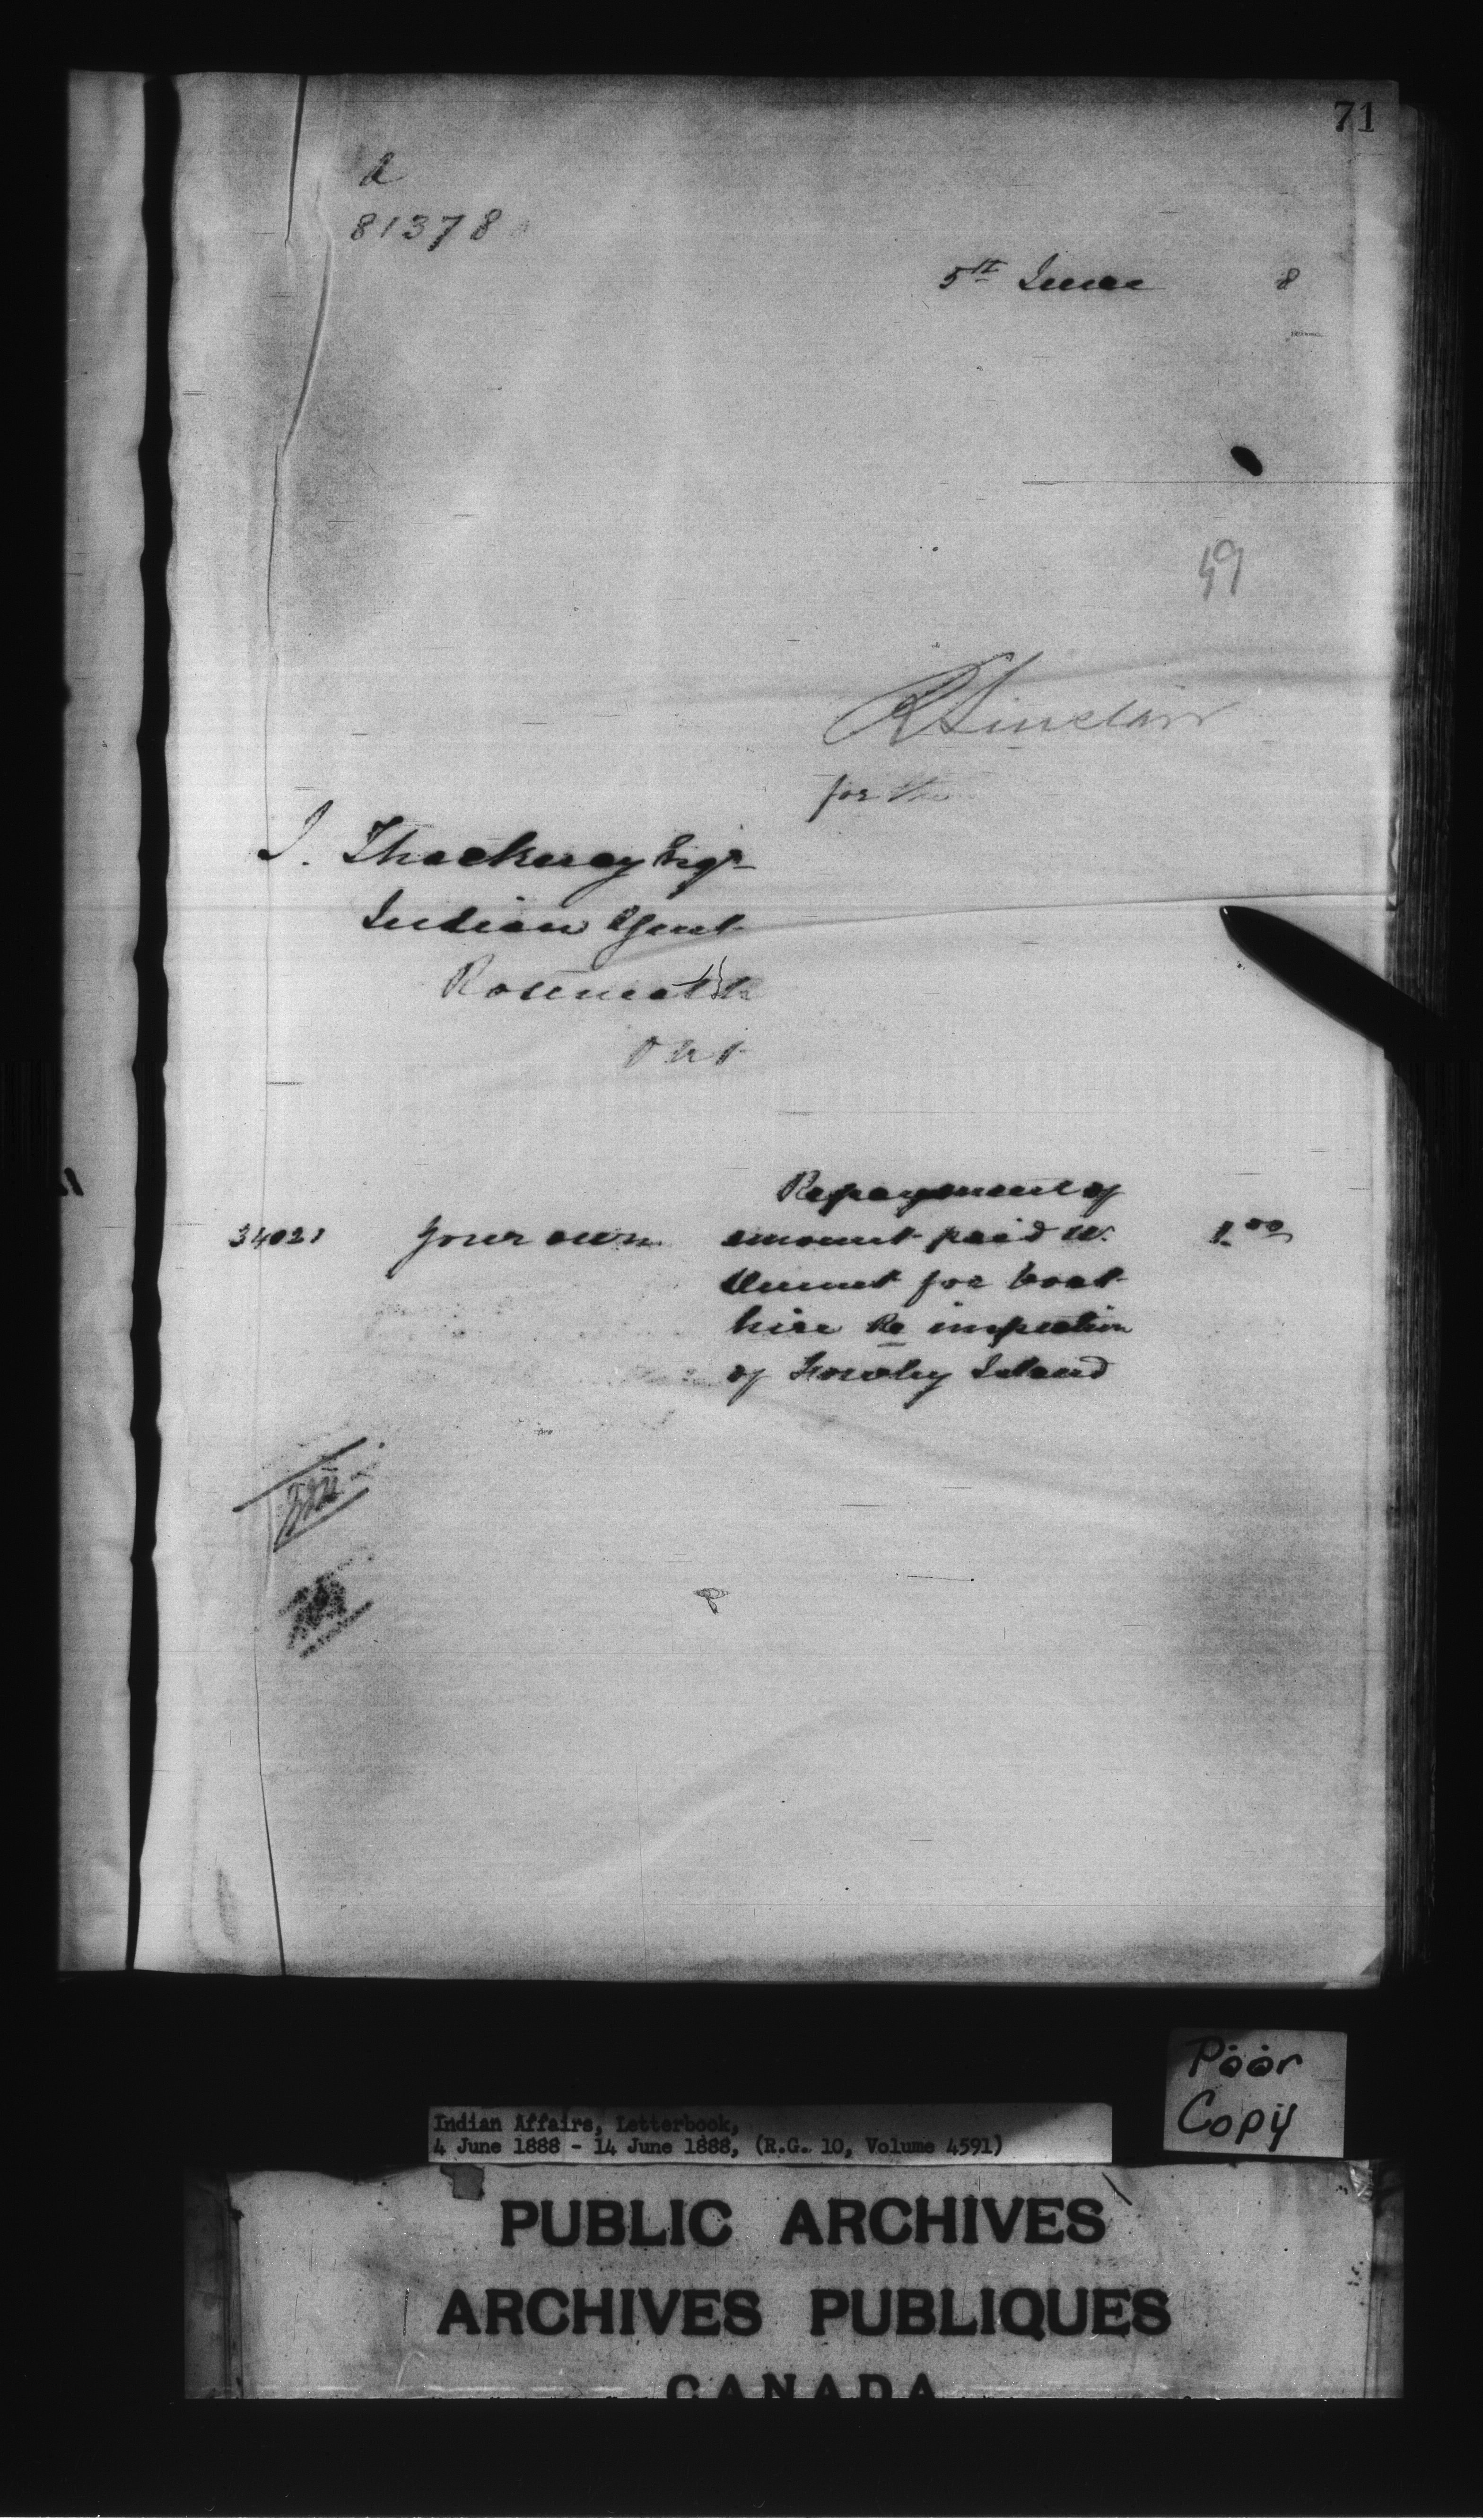 71
A
81378
5th June 8
59
R Sinclair
for the
J. Thackeray Esqr
Indian Agent
Roseneath
Ont
Repayment of
34021 your own amount paid W. 1.00
for boat
hire Re inspection
of Island
Poor
Copy
Indian Affairs, Letterbook,
4 June 1888 - 14 June 1888, (R.G. 10, Volume 4591)
PUBLIC ARCHIVES
ARCHIVES PUBLIQUES
CANADA